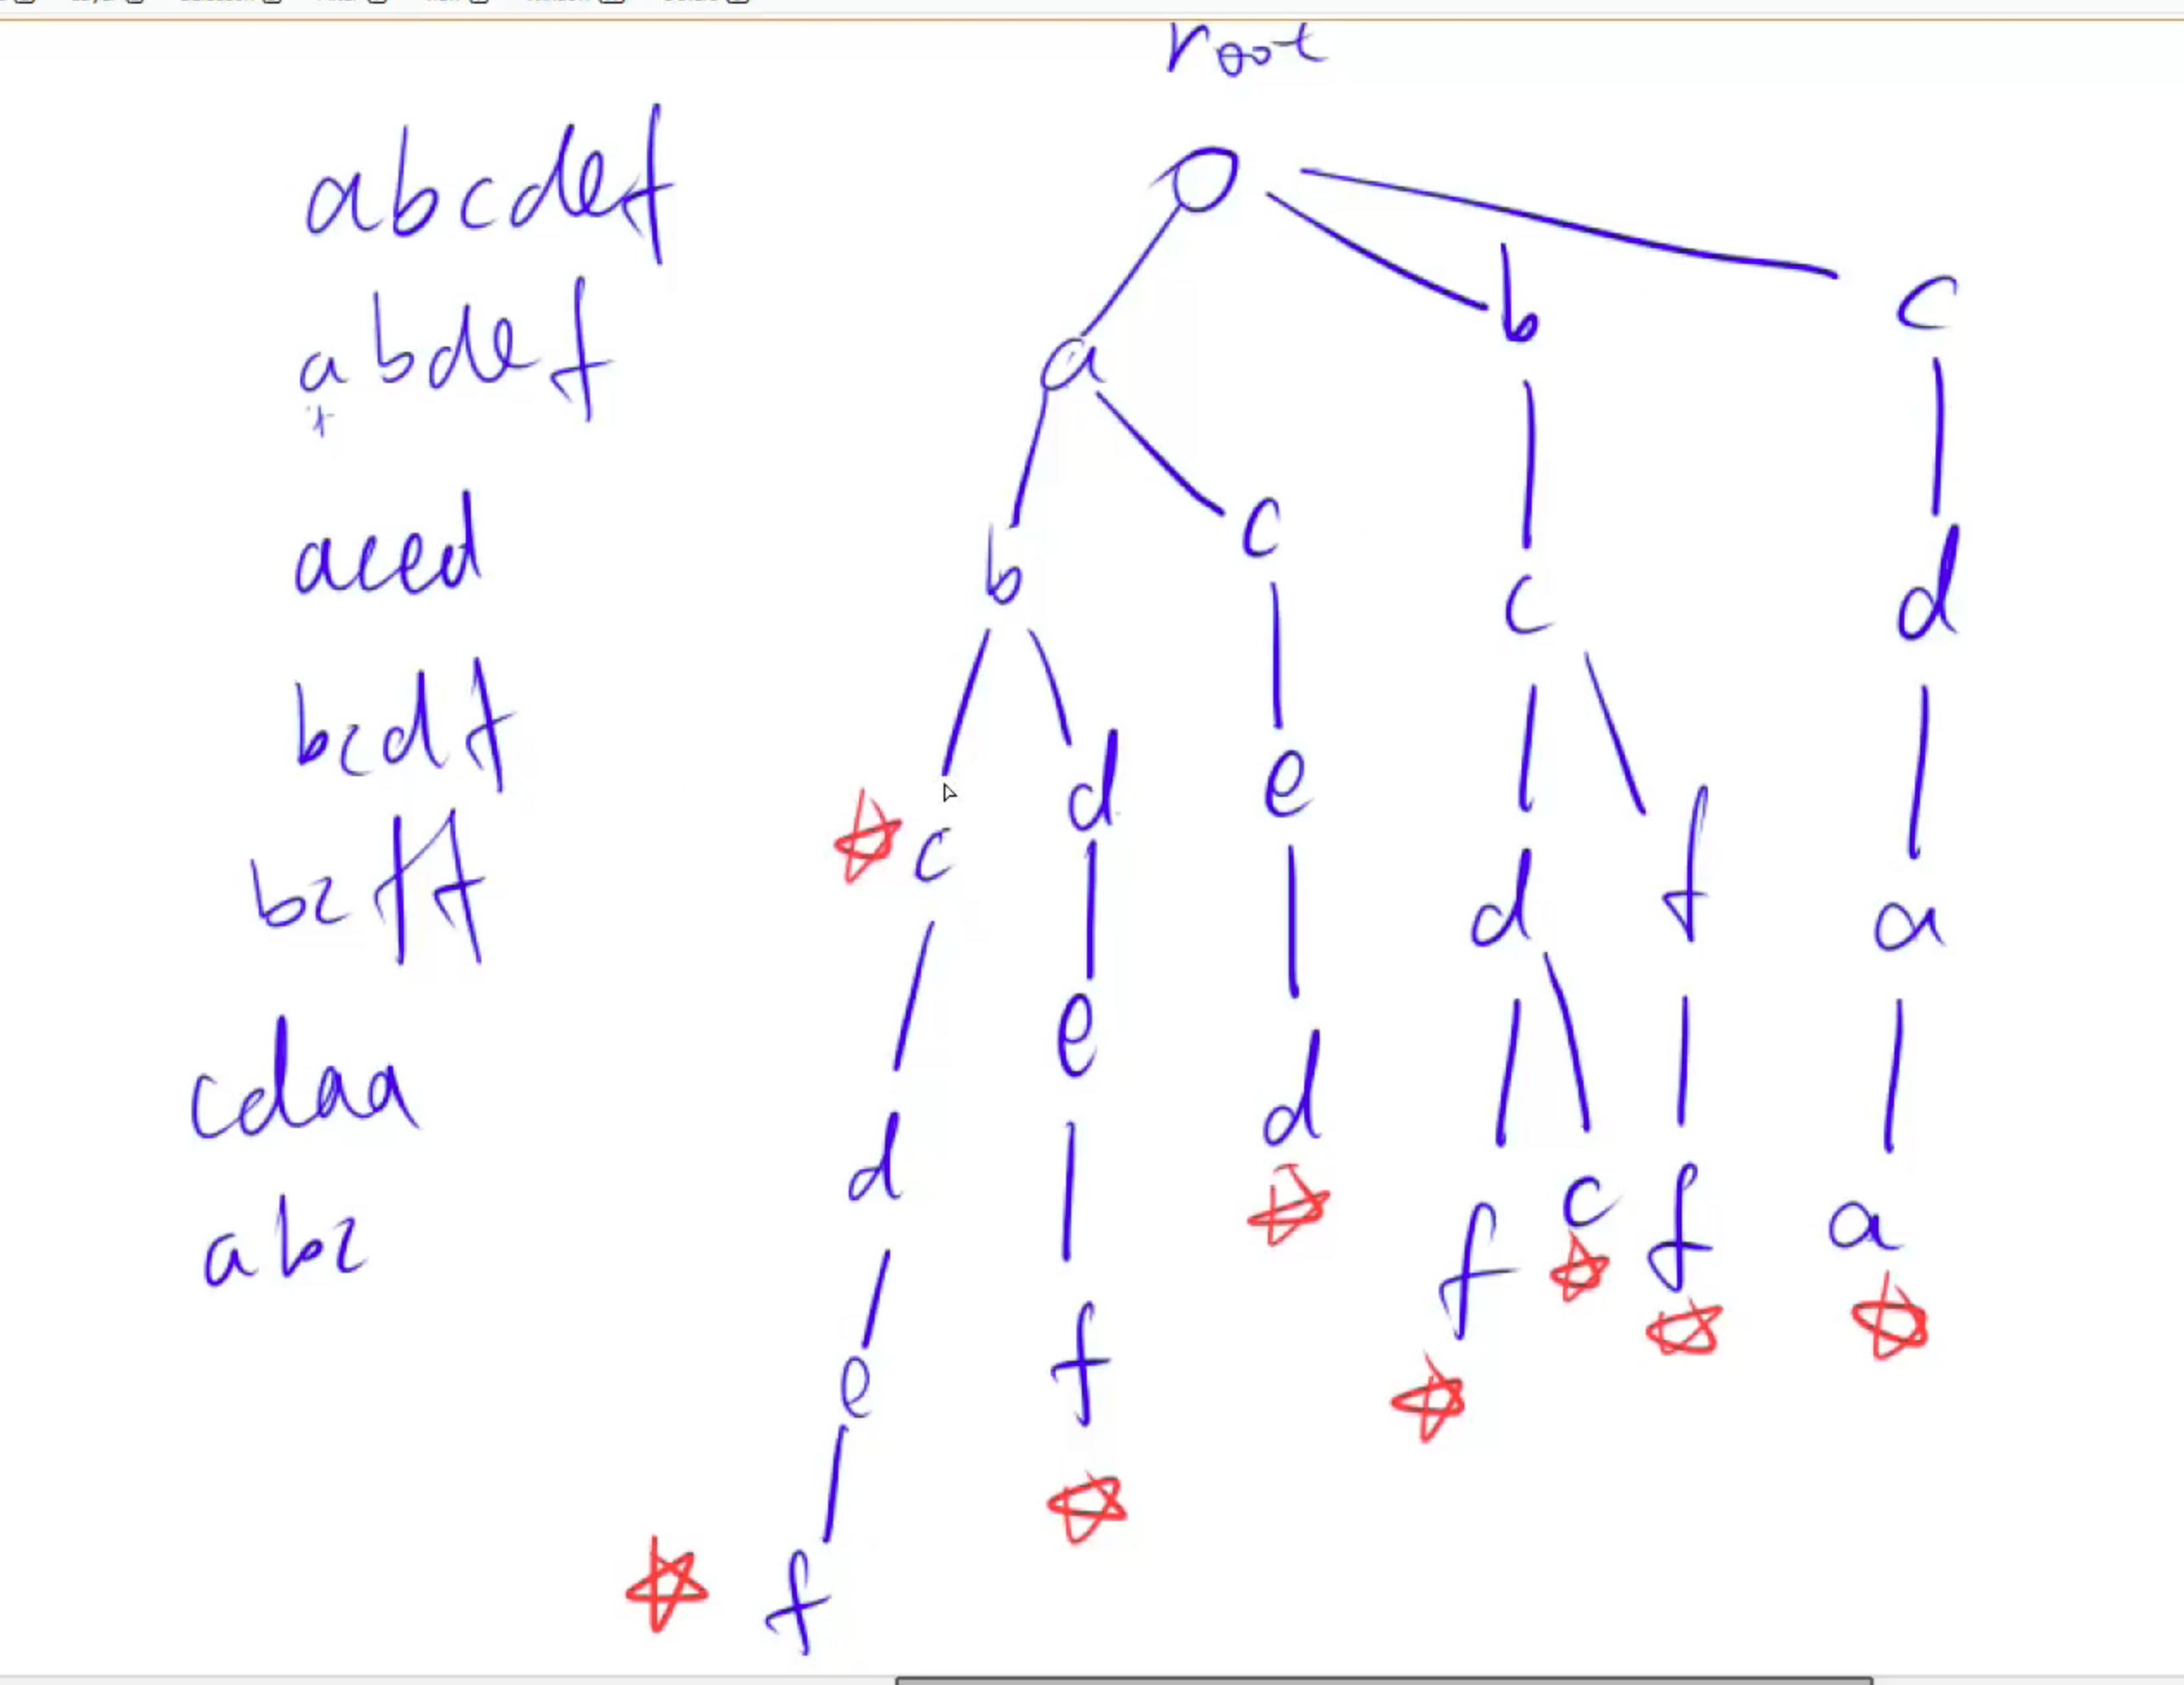 root
abcdef
abdef
aced
bcdf
bcff
cdaa
abc
a
b
c
b
c
c
d
c
d
e
d
f
a
c
d
e
d
f
c
f
a
e
f
f